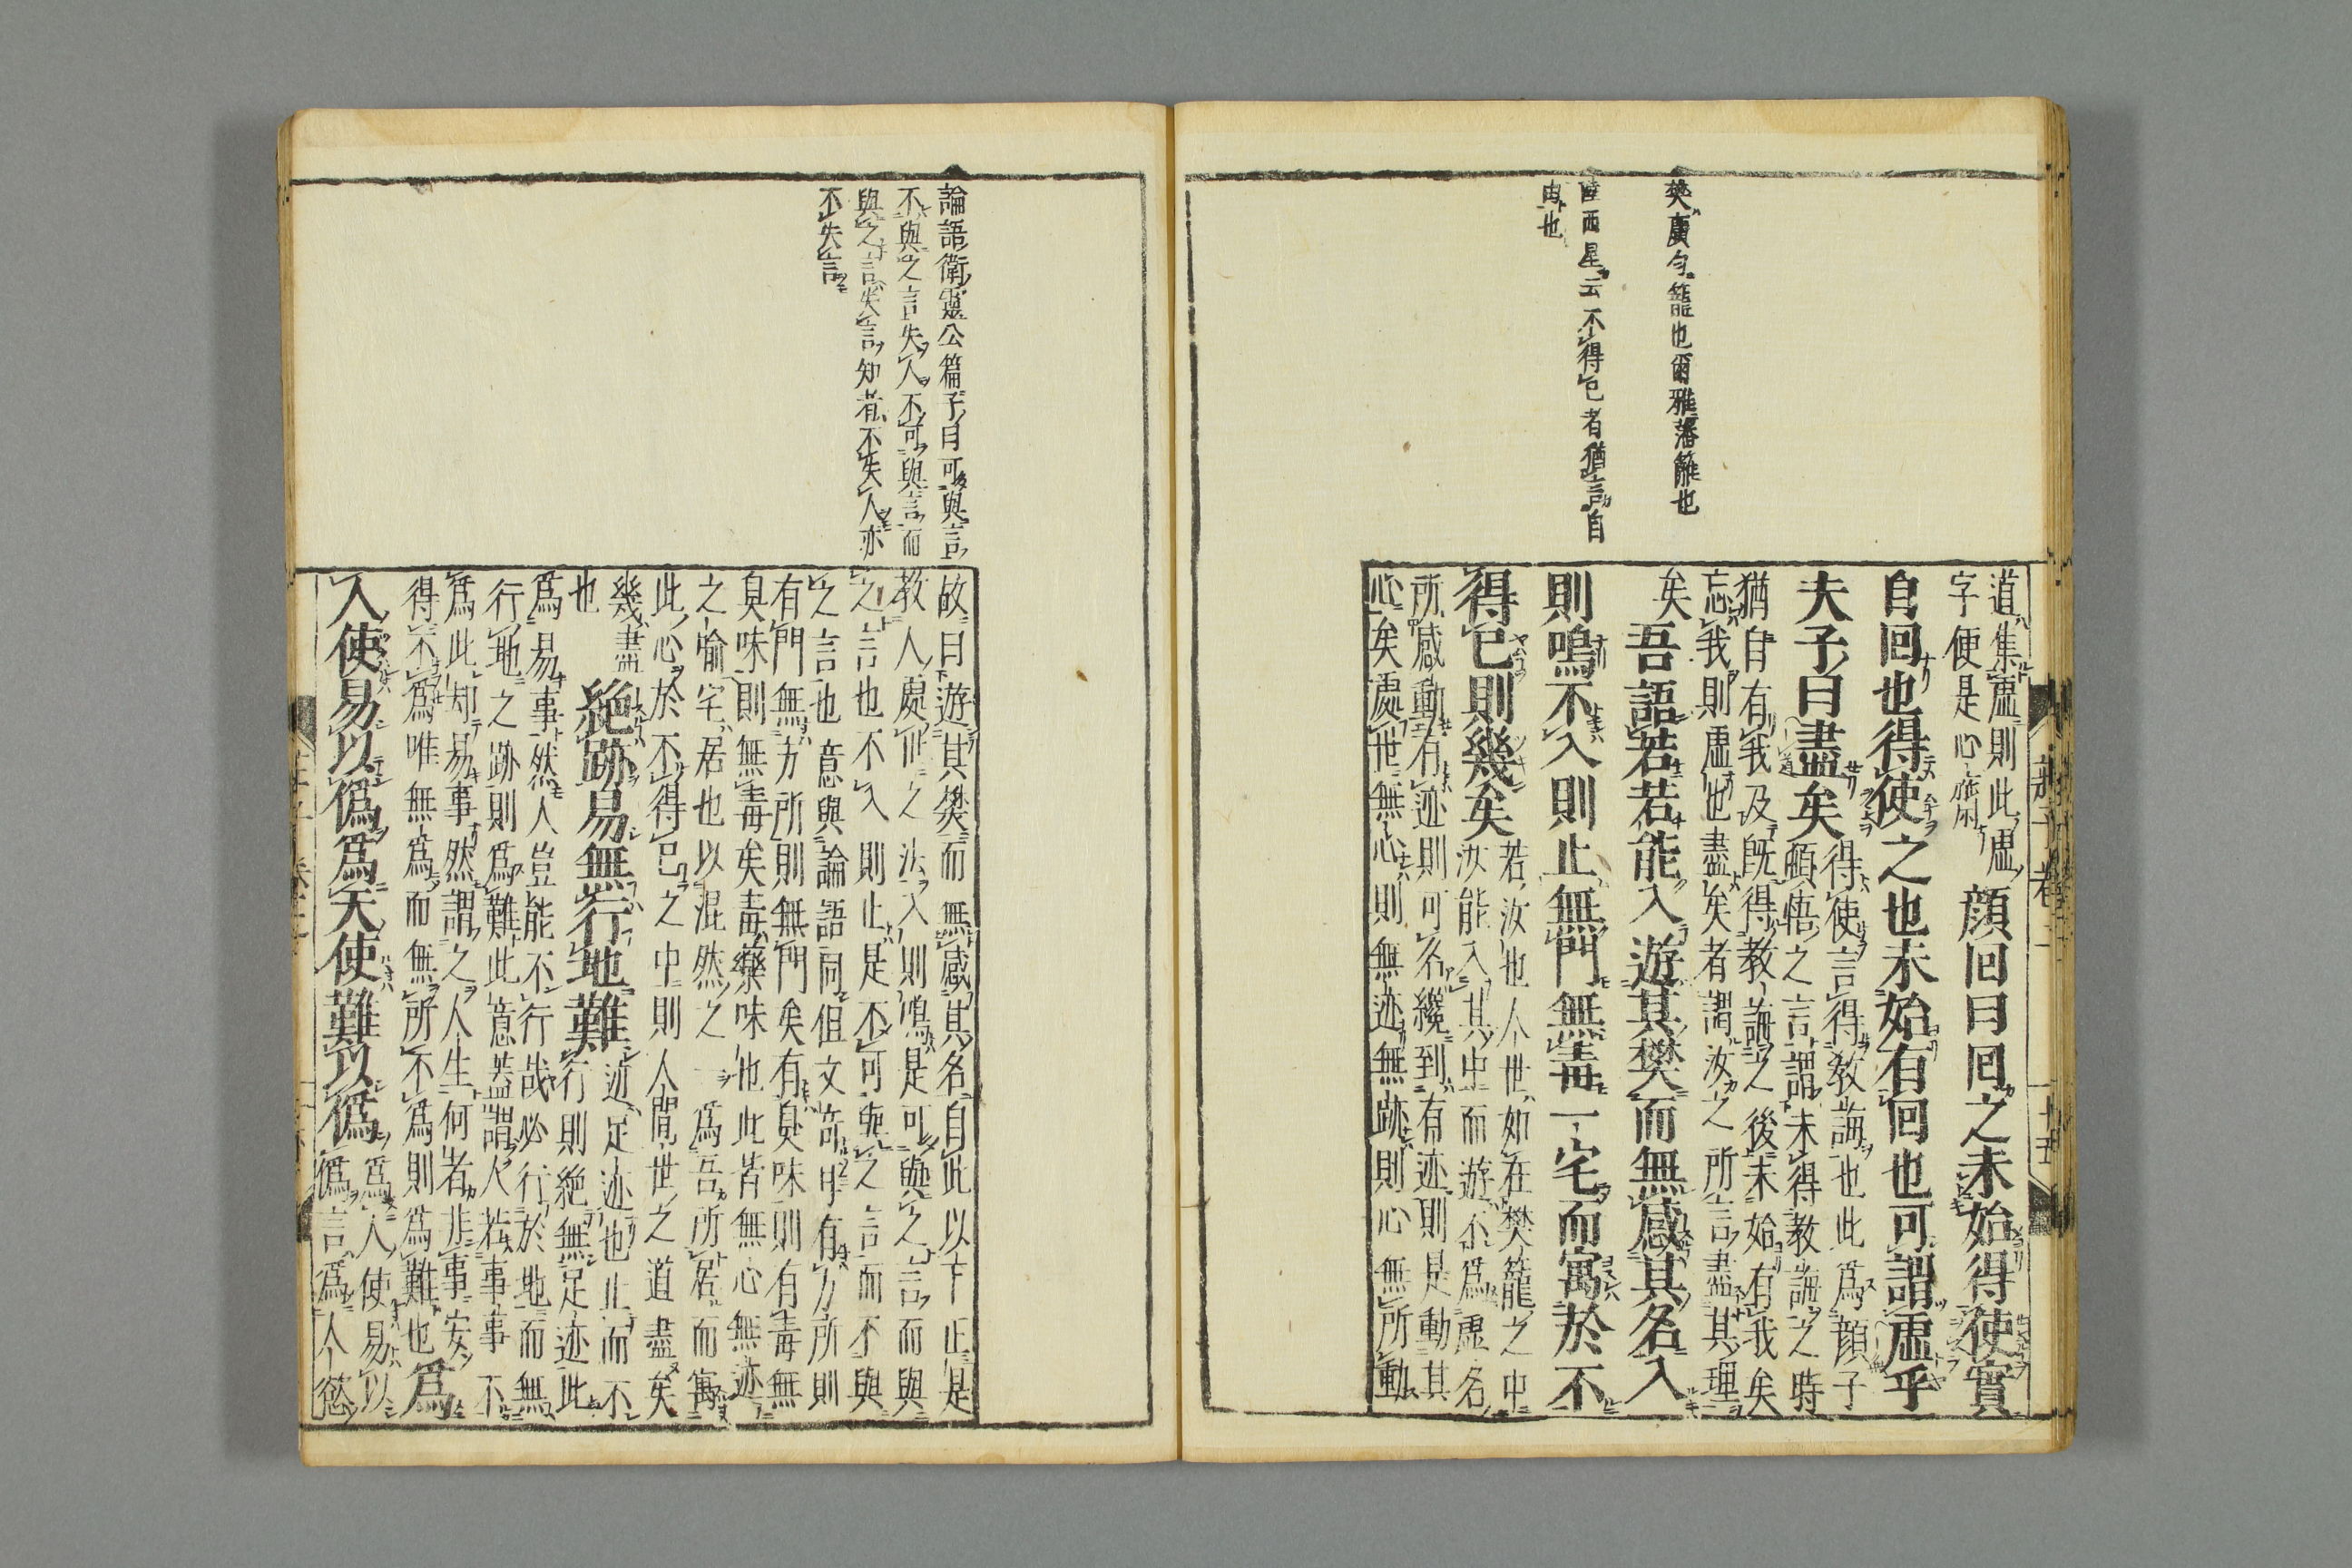 樊廣勻籠也爾雅藩籬也
陸西星云不得已者猶言自
由也
道集虛則此虛
字便是心齋
顏回曰回之未始得使實
自回也得使之也未始有回也可謂虛乎
夫子曰盡矣
得使言得教誨也此爲顏子
頓悟之言謂未得教誨之時
猶自有我及既得教誨之後未始有我矣
忘我則虛也盡矣者謂汝之所言盡其理
矣
吾語若若能入遊其樊而無感其名入
則鳴不入則止無門無毒一宅而寓於不
得已則幾矣
若汝也人世如在樊籠之中
汝能入其中而遊不爲虛名
所感動有迹則可名纔到有迹則是動其
心矣處世無心則無迹無跡則心無所動
莊子 卷二
十五
論語衛靈公篇子曰可與言
不與之言失人不可與言而
與之言失言知者不失人亦
不失言
故曰遊其樊而無感其名自此以下止是
教人處世之法入則鳴是可與之言而與
之言也不入則止是不可與之言而不與
之言也意與論語同但文奇耳有方所則
有門無方所則無門矣有臭味則有毒無
臭味則無毒矣毒藥味也此皆無心無迹
之喻宅居也以混然之一爲吾所居而寓
此心於不得已之中則人間世之道盡矣
幾盡
也
絕跡易無行地難
迹足迹也止而不
行則絕無足迹此
爲易事然人豈能不行哉必行於地而無
行地之跡則爲難此意蓋謂人若事事不
爲此却易事然謂之人生何者非事安
得不爲唯無爲而無所不爲則爲難也
爲
人使易以僞爲天使難以僞
爲人使易以
僞言爲人慾